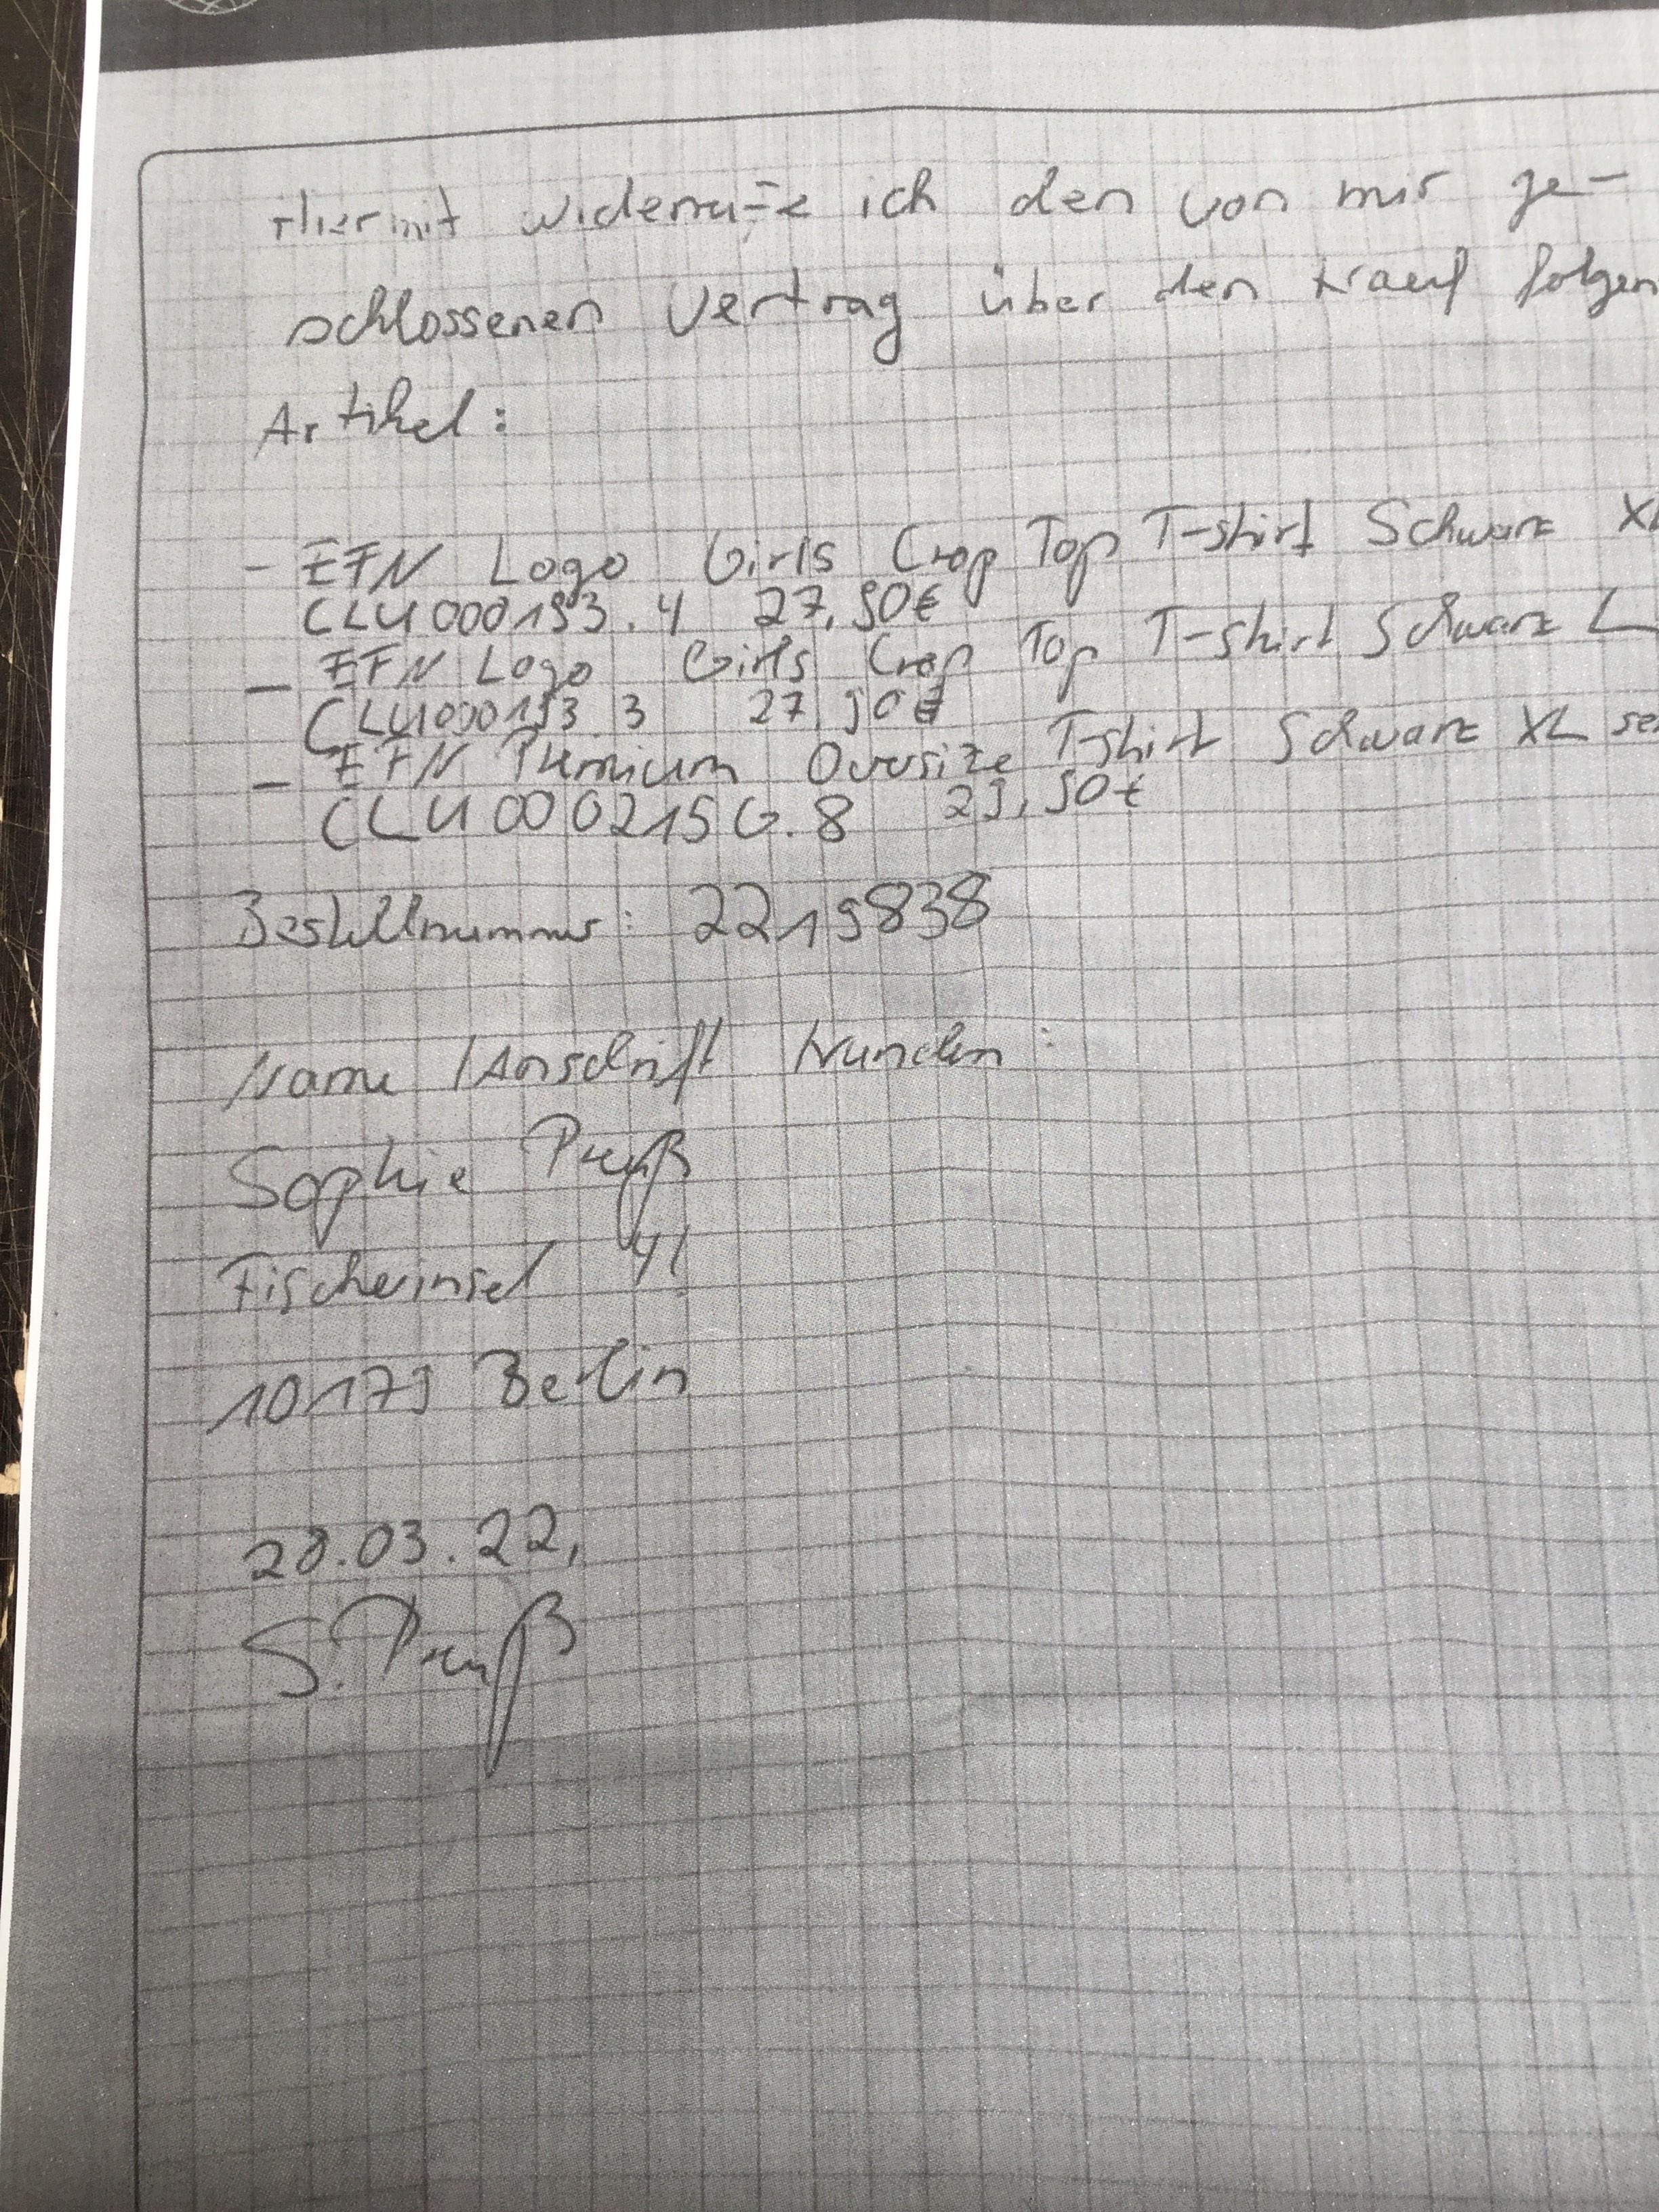 Hiermit widerrufe ich den von mir ge-
schlossenen Vertrag über den Kauf folgen
Artikel:
- EFN Logo Girls Crop Top T-shirt Schwarz XL
CLU1000193.4 27,90€
- EFN Logo Girls Crop Top T-shirt Schwarz L
CLU1000193.3 27,90€
- EFN Premium Oversize T-shirt Schwarz XL
CLU1000215G.8 29,90€
Bestellnummer: 2219838
Name / Anschrift Kunden:
Sophie Preuß
Fischerinsel
10179 Berlin
28.03.22,
S. Preuß